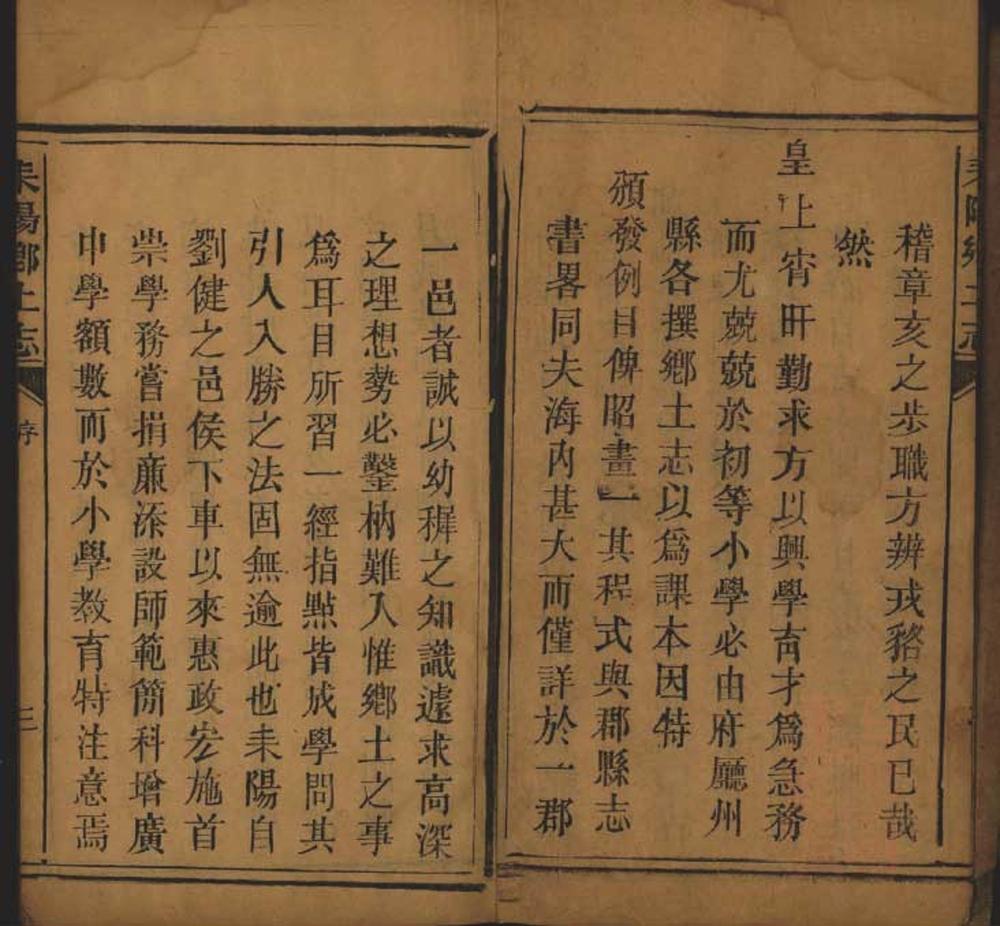 耒陽鄉土志
稽章亥之步職方辨戎貉之民已哉
然
皇上宵旰勤求方以興學育才爲急務
而尤兢兢於初等小學必由府廳州
縣各撰鄉土志以爲課本因特
頒發例目俾昭畫一其程式與郡縣志
書畧同夫海內甚大而僅詳於一郡
一邑者誠以幼穉之知識遽求高深
之理想勢必鑿枘難入惟鄉土之事
爲耳目所習一經指點皆成學問其
引人入勝之法固無逾此也耒陽自
劉健之邑侯下車以來惠政宏施首
崇學務嘗捐廉添設師範簡科增廣
中學額數而於小學教育特注意焉
耒陽鄉土志
序
三